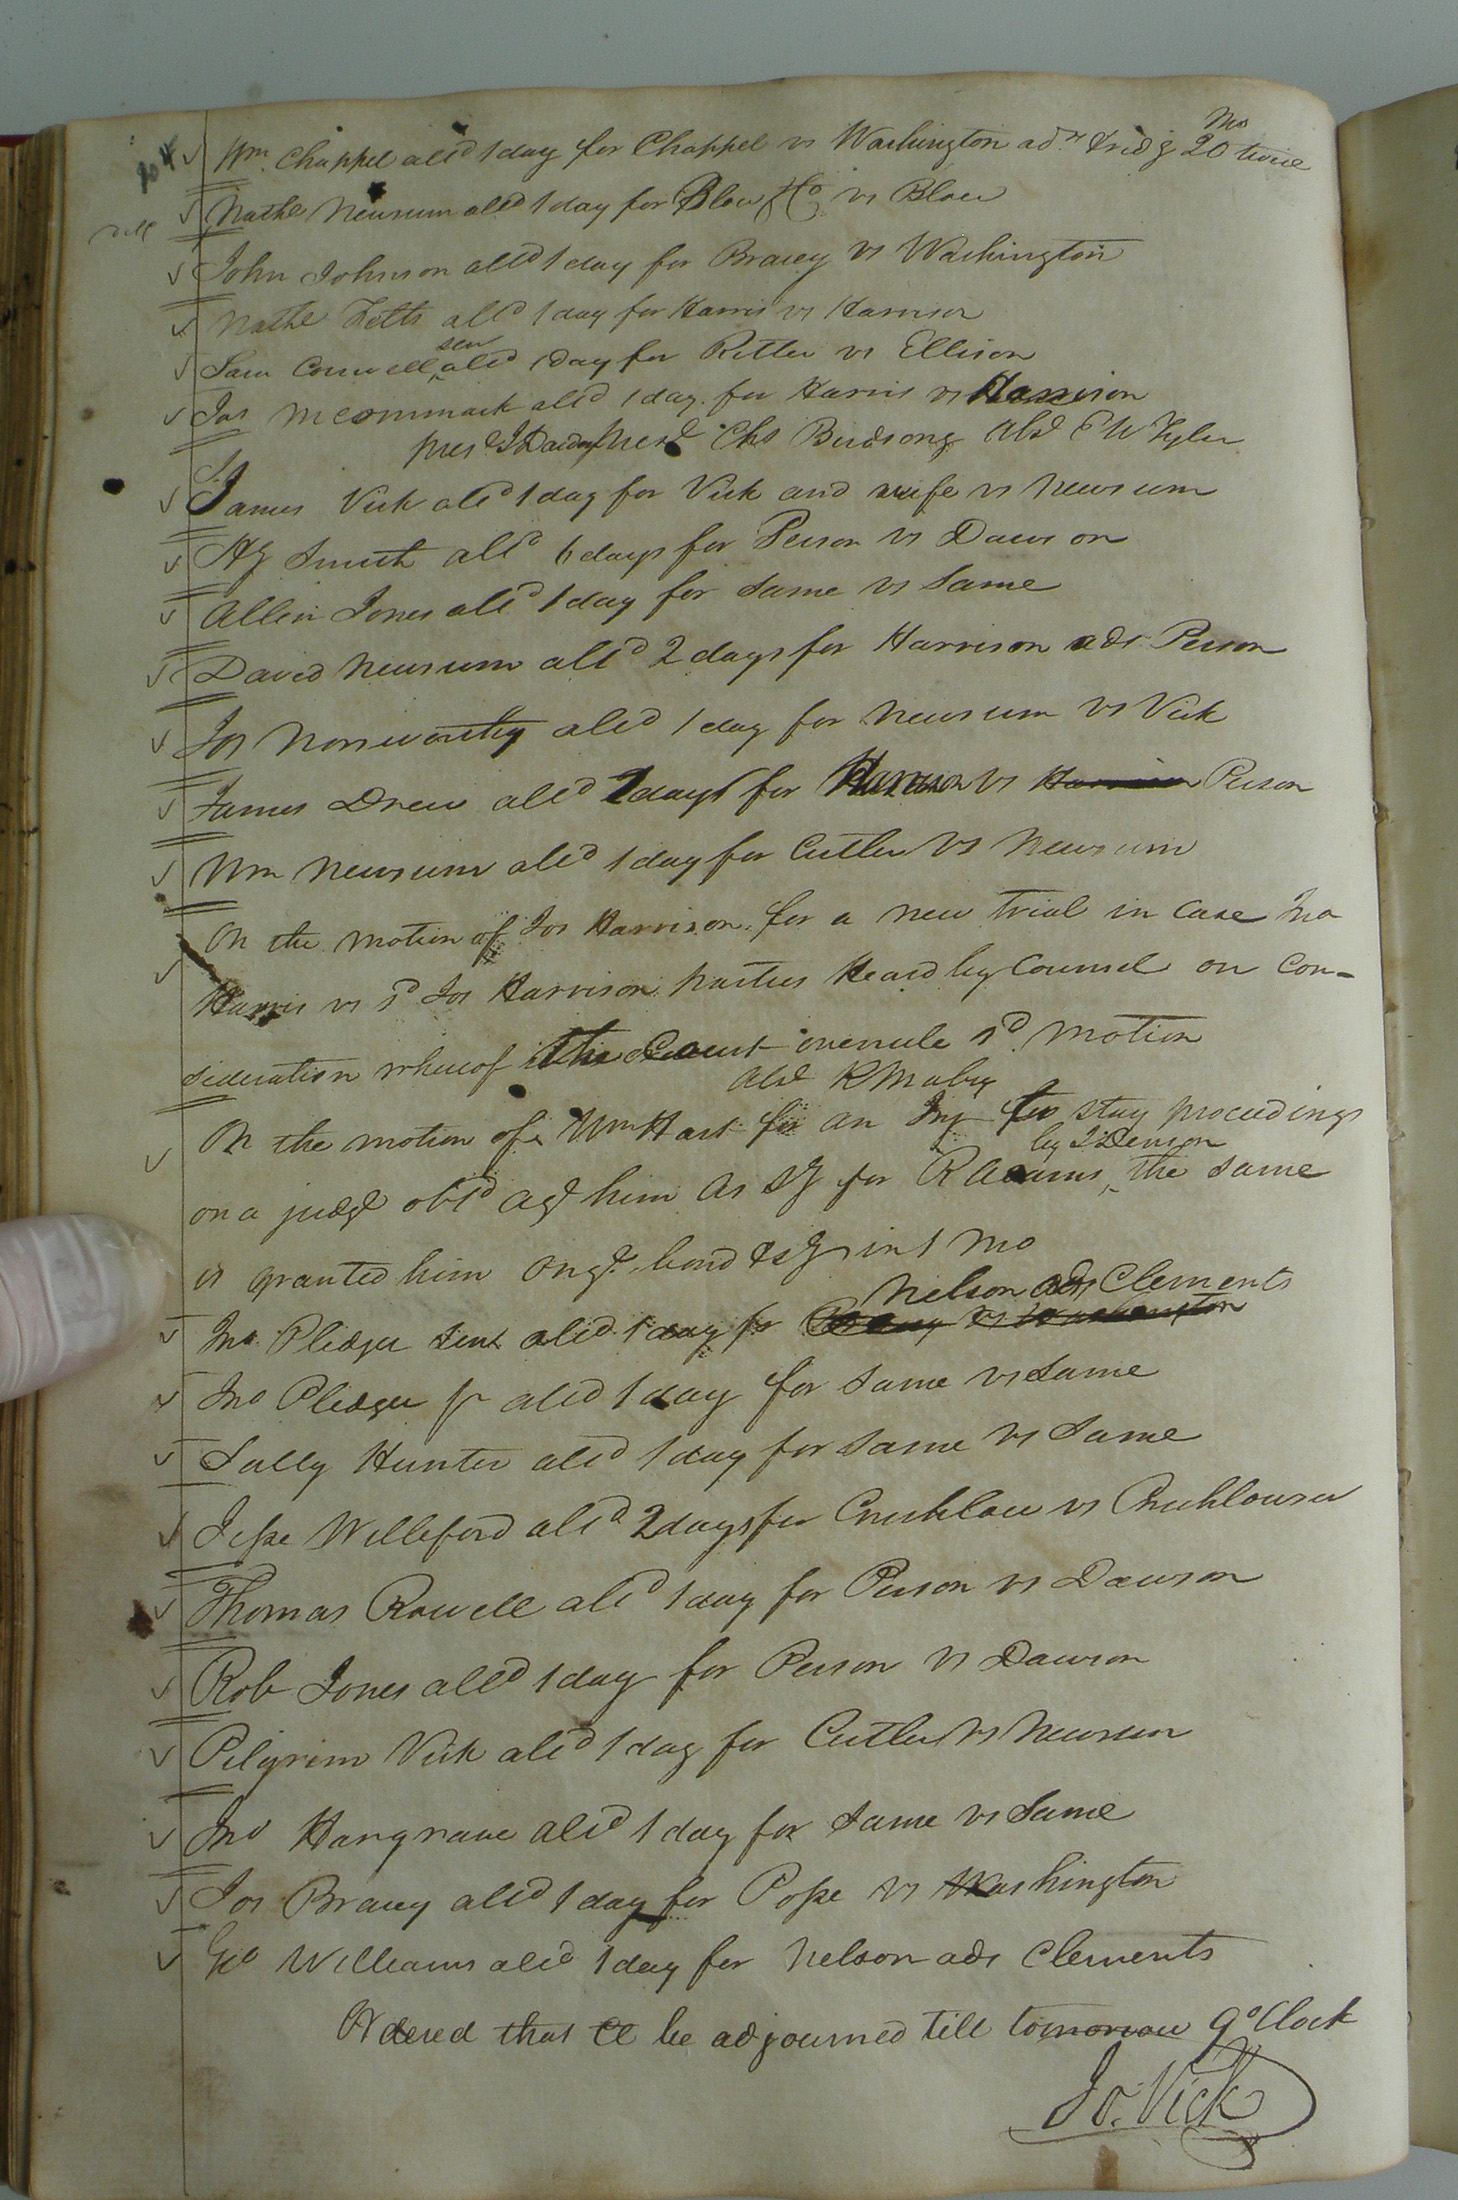 204
Wm. Chappel alld 1 day for Chappel vs Washington adr & ridg 20 Ms twice
Nathl Newsum alld 1 day for Blow & Co vs Blow
John Johnson alld 1 day for Bracey vs Washington
Nathl Felts alld 1 day for Harris vs Harrison
Sam Cornwell senr alld 1 day for Ritter vs Ellison
Jas McCormmack alld 1 day for Harris vs Harrison
pres Chs Birdsong Abst E W Tyler
James Vick alld 1 day for Vick and wife vs Newsum
HG Smith alld 6 days for Person vs Dawson
Allen Jones alld 1 day for same vs same
David Newsum alld 2 days for Harrison ads Person
Jos Norsworthy alld 1 day for Newsum vs Vick
James Drew alld days for Harrison vs Harrison Person
Wm Newsum alld 1 day for Cutler vs Newsum
On the motion of Jos Harrison for a new trial in case Jno
Harris vs sd Jos Harrison parties heard by Counsel on con-
sideration whereof the Court overrule sd motion
Abst R Mabry
On the motion of Wm Hart for an Inj to stay proceedings
on a judgt obtd agt him as sy for R Adams by J Denson the same
is granted him on gg bond & sy in 1 mo
Jno Pledger senr alld 1 day for Bracey vs Washington Nelson ads Clements
Jno Pledger jr alld 1 day for same vs same
Sally Hunter alld 1 day for same vs same
Jesse Williford alld 2 days for Crichlow vs Crichlow
Thomas Rowell alld 1 day for Person vs Dawson
Rob Jones alld 1 day for Person vs Dawson
Pilgrim Vick alld 1 day for Cutler vs Newsum
Jno Hargrave alld 1 day for same vs same
Jos Bracey alld 1 day for Pope vs Washington
Geo Williams alld 1 day for Nelson ads Clements
Ordered that Ct be adjourned till tomorrow 9 oClock
Jo. Vick